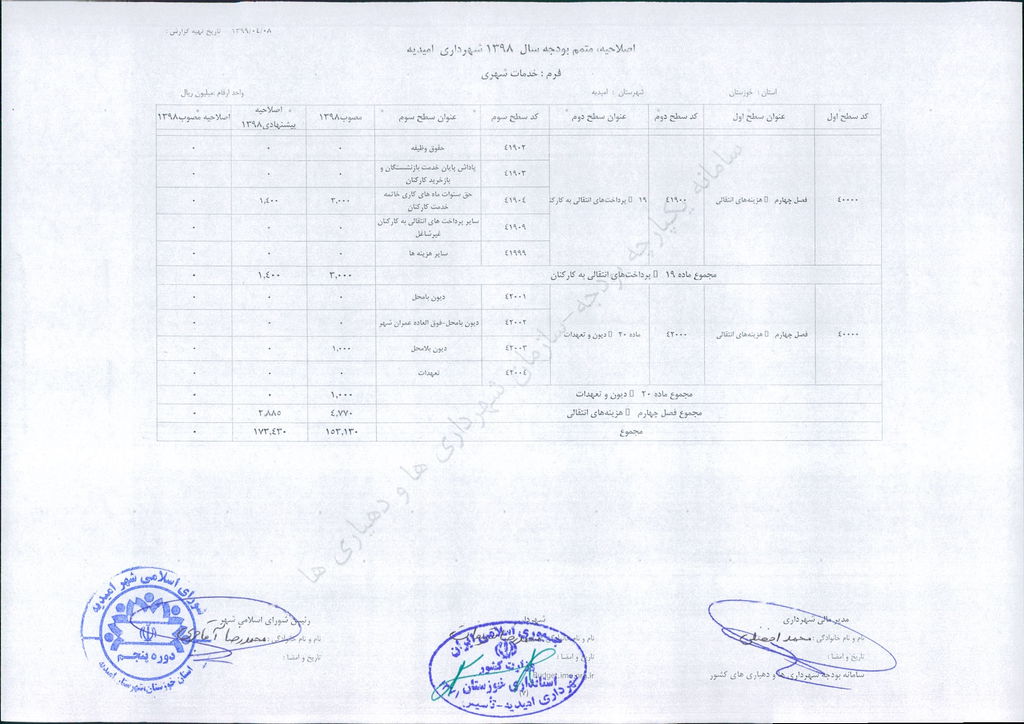 تاریخ تهیه گزارش : ۱۳۹۹/۰۴/۰۸
اصلاحیه، متمم بودجه سال ۱۳۹۸ شهرداری امیدیه
فرم : خدمات شهری
استان : خوزستان شهرستان : امیدیه واحد ارقام :میلیون ریال
کد سطح اول عنوان سطح اول کد سطح دوم عنوان سطح دوم کد سطح سوم عنوان سطح سوم مصوب۱۳۹۸ اصلاحیه پیشنهادی۱۳۹۸ اصلاحیه مصوب۱۳۹۸
۴۱۹۰۲ حقوق وظیفه ۰ ۰ ۰
۴۱۹۰۳ پاداش پایان خدمت بازنشستگان و بازخرید کارکنان ۰ ۰ ۰
۴۰۰۰۰ فصل چهارم ▯ هزینه‌های انتقالی ۴۱۹۰۰ ۱۹ ▯ پرداخت‌های انتقالی به کارکنا ۴۱۹۰۴ حق سنوات ماه های کاری خاتمه خدمت کارکنان ۳,۰۰۰ ۱,۴۰۰ ۰
۴۱۹۰۹ سایر پرداخت های انتقالی به کارکنان غیرشاغل ۰ ۰ ۰
۴۱۹۹۹ سایر هزینه ها ۰ ۰ ۰
مجموع ماده ۱۹ ▯ پرداخت‌های انتقالی به کارکنان ۳,۰۰۰ ۱,۴۰۰ ۰
۴۲۰۰۱ دیون بامحل ۰ ۰ ۰
۴۲۰۰۲ دیون بامحل-فوق العاده عمران شهر ۰ ۰ ۰
۴۰۰۰۰ فصل چهارم ▯ هزینه‌های انتقالی ۴۲۰۰۰ ماده ۲۰ ▯ دیون و تعهدات ۴۲۰۰۳ دیون بلامحل ۱,۰۰۰ ۰ ۰
۴۲۰۰۴ تعهدات ۰ ۰ ۰
مجموع ماده ۲۰ ▯ دیون و تعهدات ۱,۰۰۰ ۰ ۰
مجموع فصل چهارم ▯ هزینه‌های انتقالی ۴,۷۷۰ ۲,۸۸۵ ۰
مجموع ۱۵۳,۱۳۰ ۱۷۳,۴۳۰ ۰
سامانه یکپارچه بودجه-سازمان شهرداری ها و دهیاری ها
مدیر مالی شهرداری
نام و نام خانوادگی : محمد
تاریخ و امضا :
سامانه بودجه شهرداری ها و دهیاری های کشور
شهردار
نام و نام خانوادگی :
تاریخ و امضا :
جمهوری اسلامی ایران
وزارت کشور
استانداری خوزستان
شهرداری امیدیه-تأسیس
رئیس شورای اسلامی شهر
نام و نام خانوادگی : محمدرضا
تاریخ و امضا :
شورای اسلامی شهر امیدیه
دوره پنجم
استان خوزستان،شهرستان امیدیه